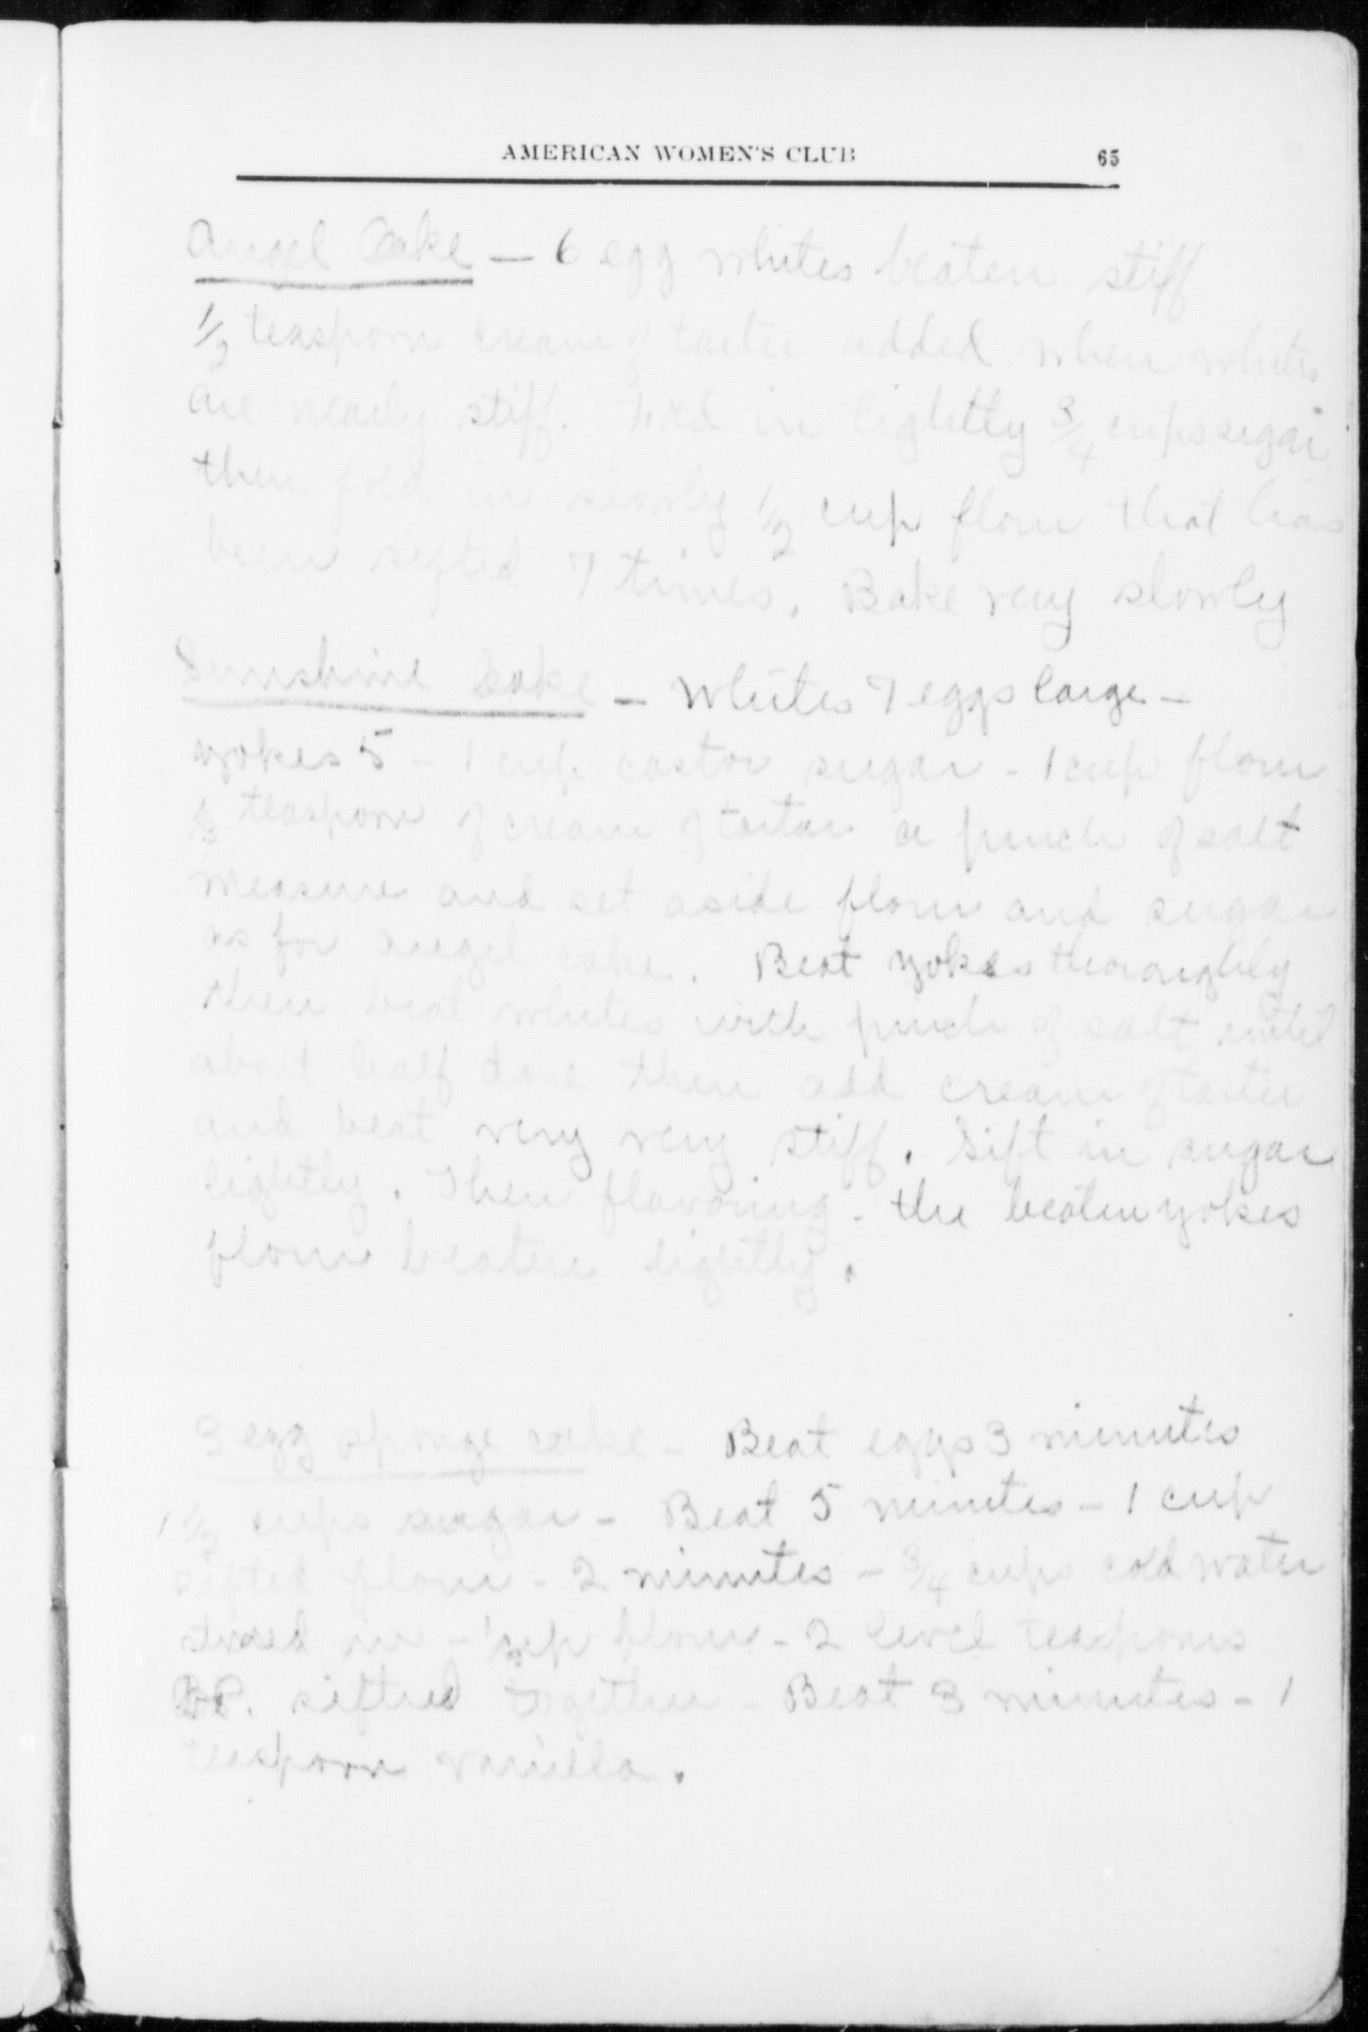 AMERICAN WOMEN'S CLUB 65
Angel Cake — 6 egg whites beaten stiff
1/2 teaspoon cream of tarter added when whites
are nearly stiff. Fold in lightly 3/4 cup sugar
then fold in slowly 1/2 cup flour that has
been sifted 7 times. Bake very slowly
Sunshine Cake — Whites 7 eggs large —
yokes 5 — 1 cup castor sugar — 1 cup flour
1/3 teaspoon of cream of tartar a pinch of salt
measure and set aside flour and sugar
as for angel cake. Beat yokes thoroughly
then beat whites with pinch of salt until
about half done then add cream of tarter
and beat very very stiff. Sift in sugar
lightly. Then flavoring - the beaten yokes
flour beaten lightly.
3 egg sponge cake — Beat eggs 3 minutes
1 1/2 cups sugar — Beat 5 minutes — 1 cup
sifted flour — 2 minutes — 3/4 cups cold water
stired in — flour — 2 level teaspoons
B.P. sifted together — Beat 3 minutes — 1
teaspoon vanilla.